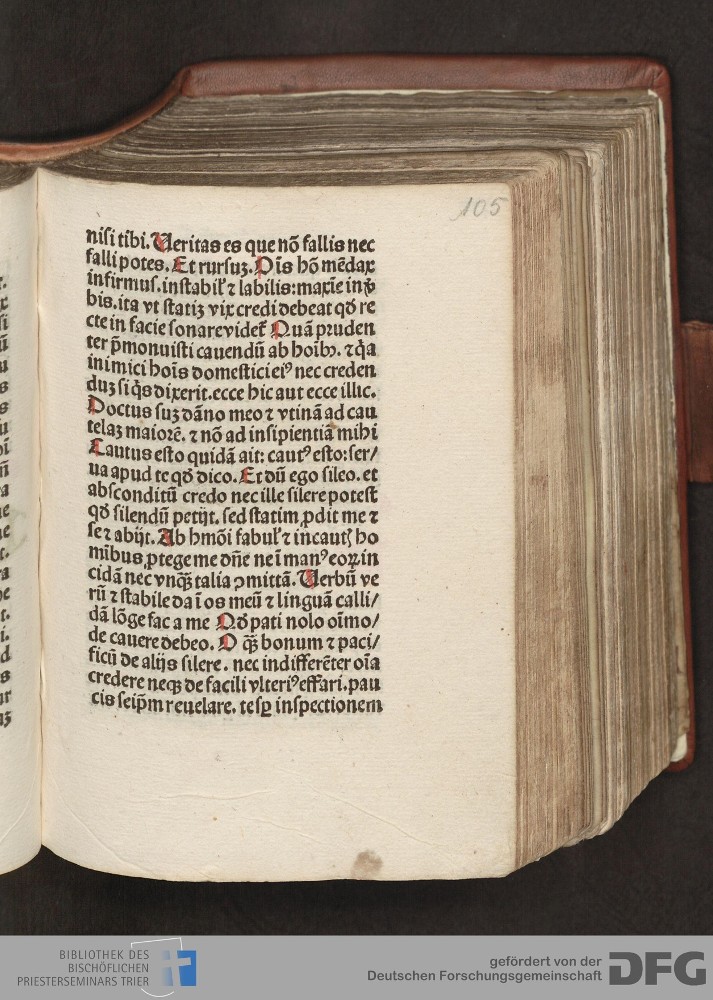 105
nisi tibi. Ueritas es que nõ fallis nec
falli potes. Et rursuʒ. Oĩs hõ mẽdax
infirmus. instabilꝭ ⁊ labilis: maxĩe in ꝟ
bis. ita vt statiʒ vix credi debeat qð re
cte in facie sonare videtꝭ Quã pruden
ter p̃monuisti cauendũ ab hoĩbꝫ. ⁊ qꝛa
inimici hoĩs domestici eiꝰ nec creden
duʒ si q̃s dixerit. ecce hic aut ecce illic.
Doctus suʒ dãno meo ⁊ vtinã ad cau
telaʒ maiorẽ. ⁊ nõ ad insipientiã mihi
Cautus esto quidã ait: cautꝰ esto: ser/
ua apud te qð dico. Et dũ ego sileo. et
absconditũ credo nec ille silere potest
qð silendũ petijt. sed statim ꝓdit me ⁊
se ⁊ abijt. Ab hmõi fabulꝭ ⁊ incautꝭ ho
mĩbus ꝓtege me dñe ne ĩ manꝰ eoꝝ in
cidã nec vnqꝫ̃ talia ꝯmittã. Uerbũ ve
rũ ⁊ stabile da ĩ os meũ ⁊ linguã calli/
dã lõge fac a me Qð pati nolo oĩmo/
de cauere debeo. O qꝫ̃ bonum ⁊ paci/
ficũ de alijs silere. nec indifferẽter oĩa
credere neqꝫ de facili vlteriꝰ effari. pau
cis seip̃m reuelare. te sꝑ inspectionem
BIBLIOTHEK DES
BISCHÖFLICHEN
PRIESTERSEMINARS TRIER
gefördert von der
Deutschen Forschungsgemeinschaft
DFG